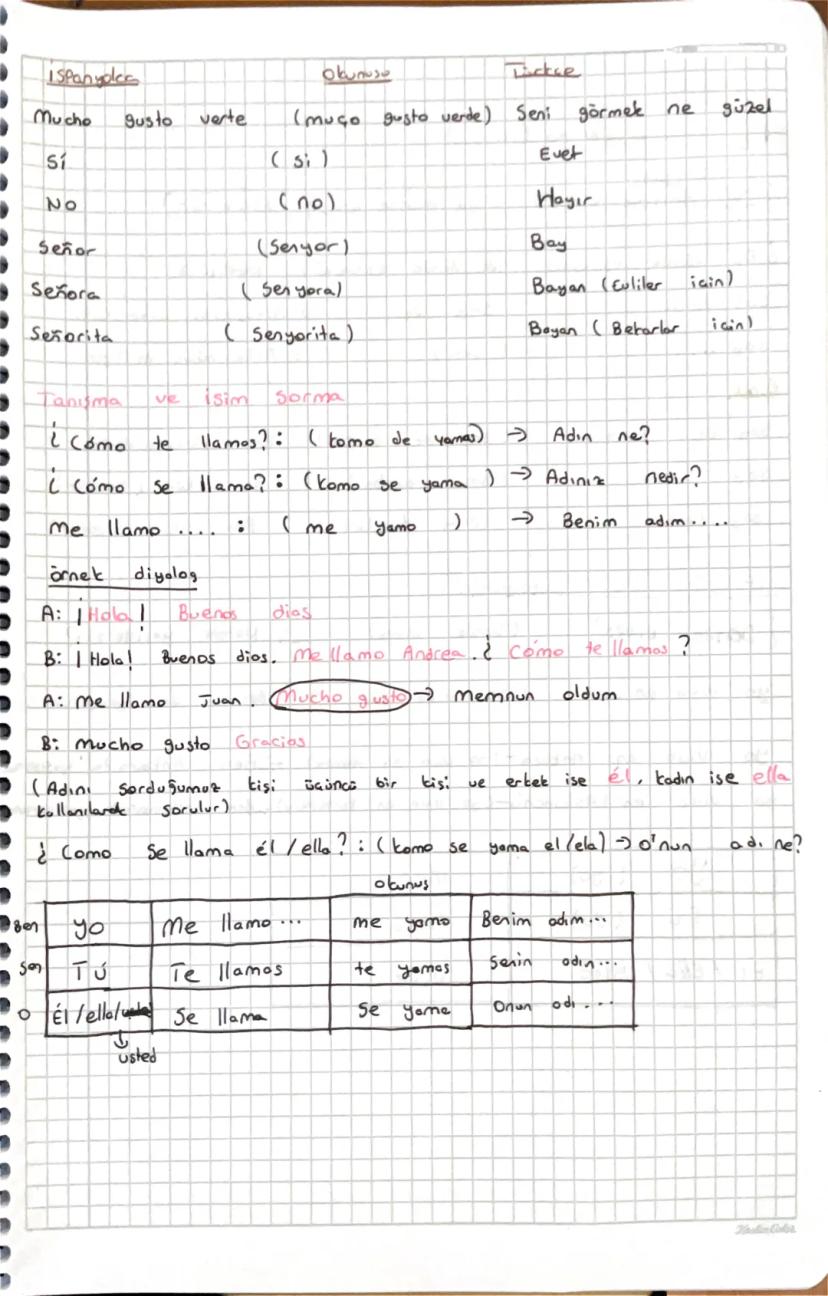 İspanyolca Okunuşu Türkçe
Mucho gusto verte (muço gusto verde) Seni görmek ne güzel
Sí (si) Evet
No (no) Hayır
Señor (Senyor) Bay
Señora (Senyora) Bayan (Evliler için)
Señorita (Senyorita) Bayan (Bekarlar için)
Tanışma ve isim sorma
¿Cómo te llamas?: (komo de yamas) → Adın ne?
¿Cómo se llama?: (komo se yama) → Adınız nedir?
Me llamo ....: (me yamo) → Benim adım....
örnek diyalog
A: ¡Hola! Buenos dias
B: ¡Hola! Buenos dias. Me llamo Andrea. ¿Cómo te llamas?
A: Me llamo Juan. Mucho gusto → memnun oldum
B: Mucho gusto Gracias
(Adını sorduğumuz kişi üçüncü bir kişi ve erkek ise él, kadın ise ella
kullanılarak sorulur)
¿Como se llama él/ella?: (komo se yama el/ela) → O'nun adı ne?
okunuş
Ben yo Me llamo... me yamo Benim adım...
Sen Tú Te llamas te yamas Senin adın...
O Él/ella/ Se llama Se yama Onun adı...
↓
usted